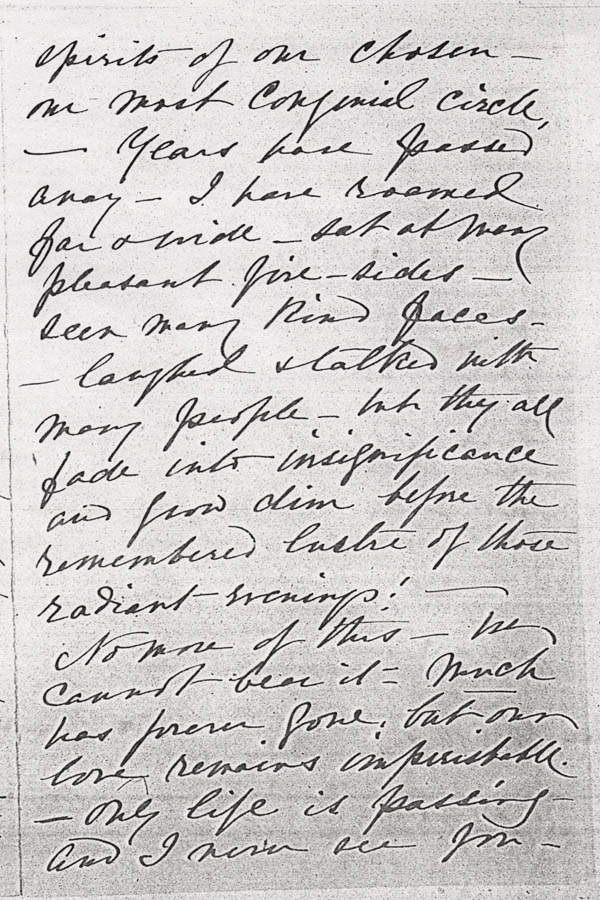 spirits of our chosen —
our most congenial circle,
— Years have passed
away — I have roamed
far & wide — sat at many
pleasant fire-sides —
seen many kind faces -
— laughed & talked with
many people — but they all
fade into insignificance
and grow dim before the
remembered lustre of those
radiant evenings! —
No more of this — we
cannot bear it = Much
has forever gone, but our
love remains imperishable.
— Only life is passing —
And I never see you —